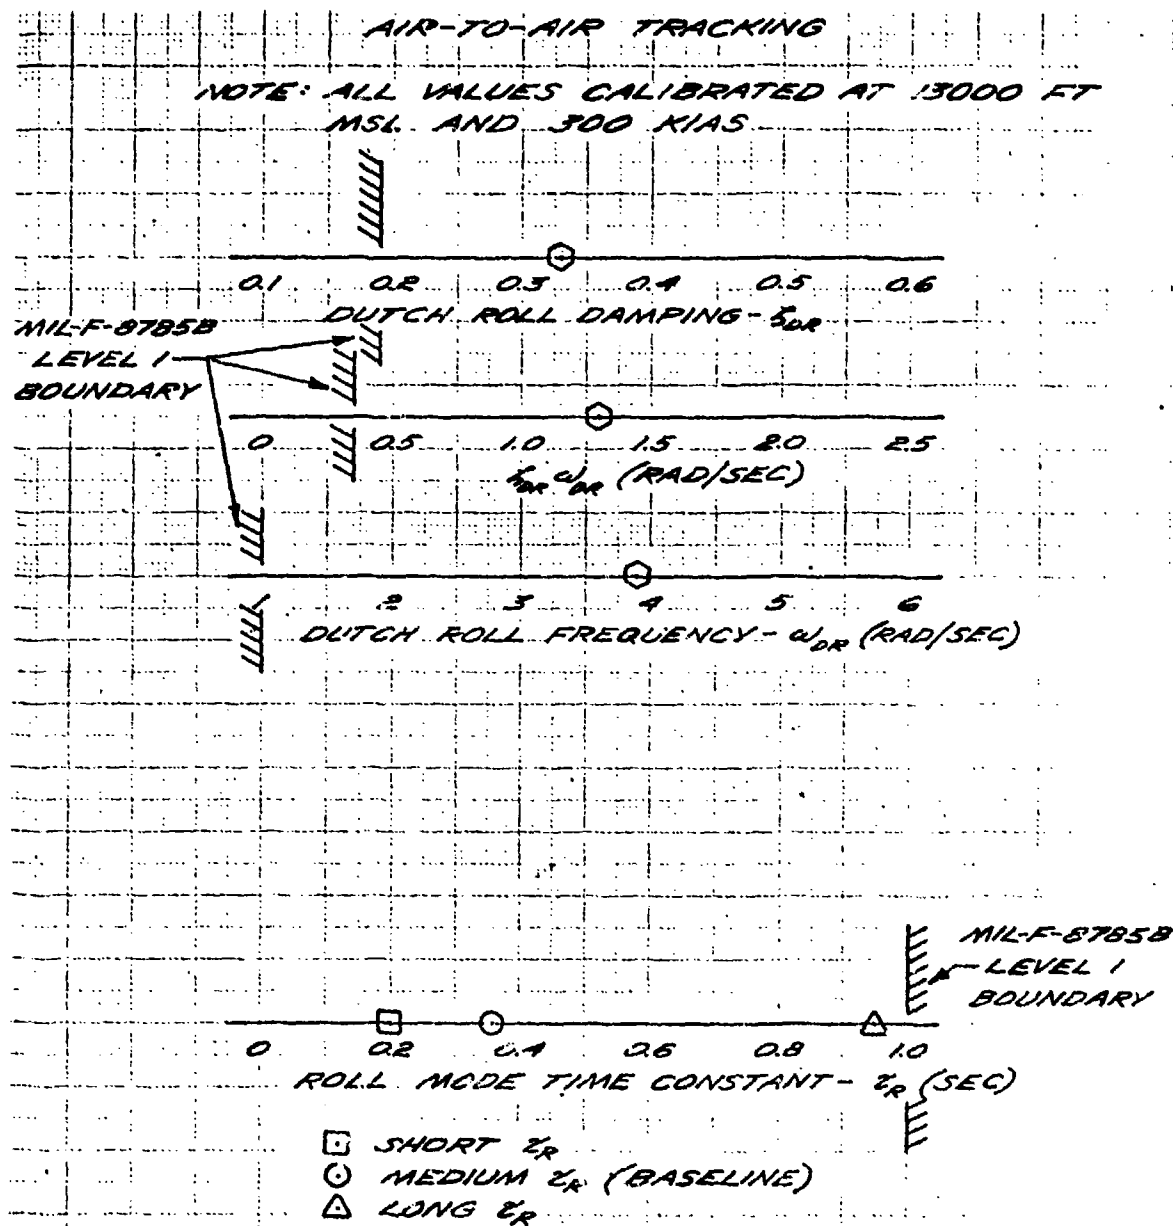 AIR-TO-AIR TRACKING
NOTE: ALL VALUES CALIBRATED AT 13000 FT
MSL AND 300 KIAS
0.1 0.2 0.3 0.4 0.5 0.6
DUTCH ROLL DAMPING - ζDR
MIL-F-8785B
LEVEL 1
BOUNDARY
0 0.5 1.0 1.5 2.0 2.5
ζDR ωDR (RAD/SEC)
1 2 3 4 5 6
DUTCH ROLL FREQUENCY - ωDR (RAD/SEC)
MIL-F-8785B
LEVEL 1
BOUNDARY
0 0.2 0.4 0.6 0.8 1.0
ROLL MODE TIME CONSTANT - τR (SEC)
SHORT τR
MEDIUM τR (BASELINE)
LONG τR